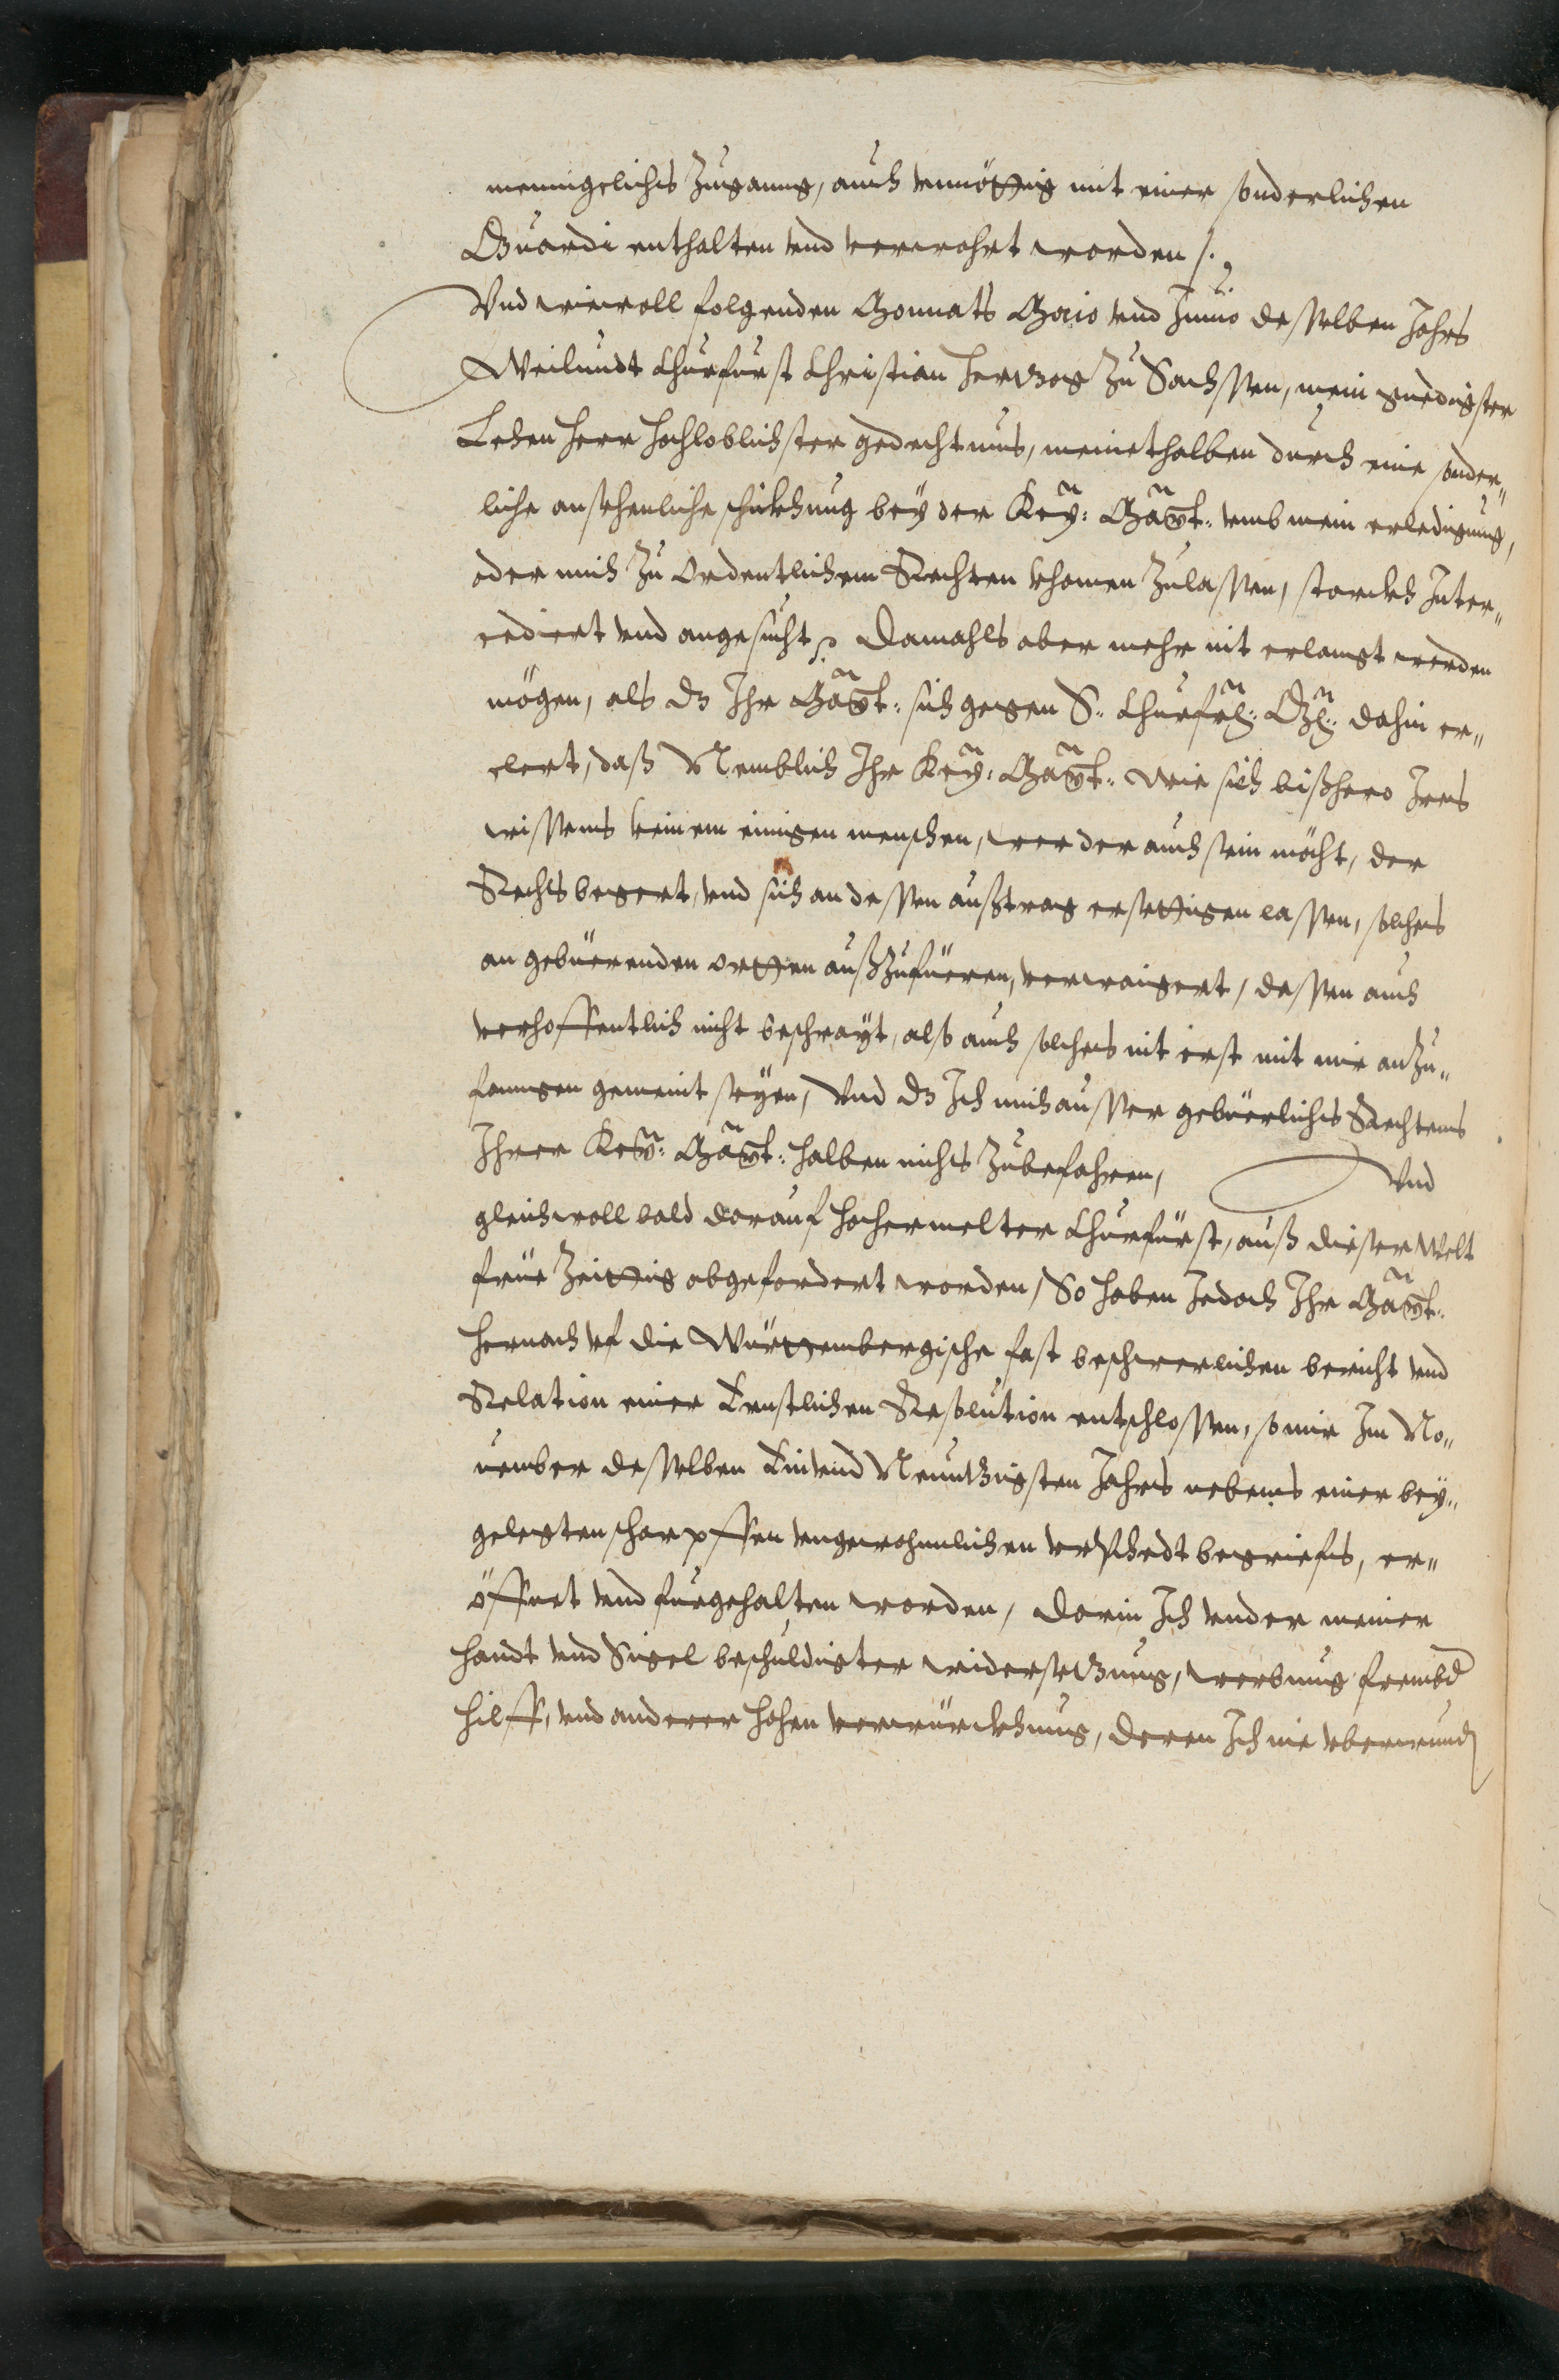 menigeliches Zugang, auch vnnöttig mit einer sonderlichen
Guardi enthalten vnd verwahrt worden /.
Vnd wiewoll folgenden Monnats Maio vnd Junio desselben Jahrs
Weilundt Churfurst Christian Hertzog Zu Sachssen, mein gnedigster
Lehen Herr hochloblichster gedechtnus, meinethalben durch eine sonder„
liche ansehenliche schickhung bey der Key: Maÿt: vmb mein erledigung,
oder mich Zu Ordentlichem Rechten khomen Zulassen, starckh Inter„
cediert vnd angesucht, Damahls aber mehr nit erlangt werden
mögen, als dz Ihr Maÿt: sich gegen S: Churfl: Gl: dahin er„
clert, daß Nemblich Ihr Key: Maÿt: wie sich bißhero Ires
wissens keinem einigen menschen, wer der auch sein möcht, der
Rechts begert, vnd sich an dessen außtrag ersettigen lassen, solches
an gebüerenden ortten außzufüeren, verwaigert, dessen auch
verhoffentlich nicht beschrayt, also auch solches nit erst mit mir anzu„
fangen gemeint seyen, Vnd dz Ich mich ausser gebüerliches Rechtens
Ihrer Key: Maÿt: halben nichts Zubefahren, Vnd
gleichwoll bald darauf hochermelter Churfürst, auß dieser Welt
früe Zeittig abgefordert worden, So haben Jedoch Ihr Maÿt:
hernach vf die Württembergische fast beschwerlichen bericht vnd
Relation einer Ernstlichen Resolution entschlossen, so mir Im No„
uember desselben Ein vnd Neuntzigsten Jahrs nebens einer bey„
gelegten scharpffen vngewohnlichen vrphedt begriefs, er„
öffnet vnd furgehalten worden, Darin Ich vnder meiner
Handt vnd Sigel beschuldigter widersetzung, werbung frembd
hilff, vnd anderer hohen verwürckhung, deren Ich nie vberwund